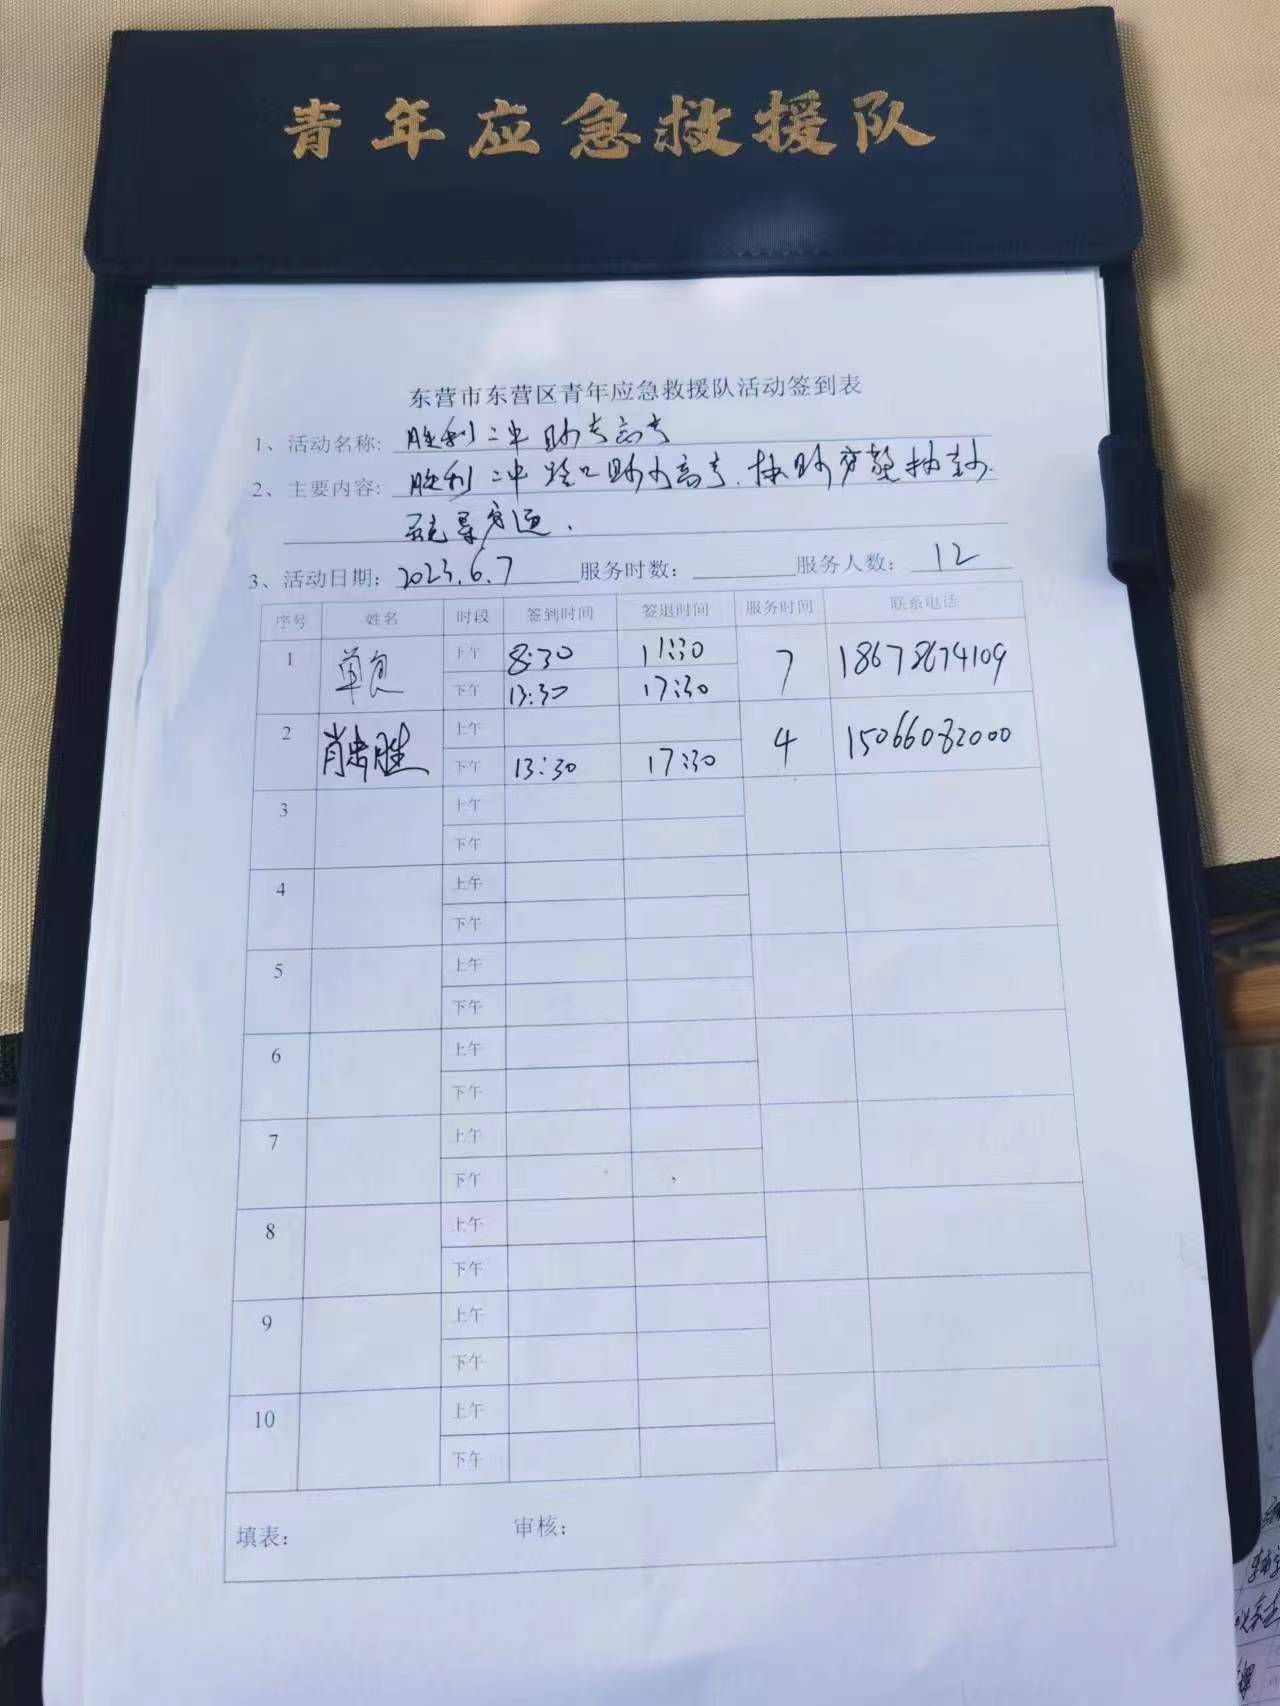 青年应急救援队
东营市东营区青年应急救援队活动签到表
1、活动名称: 胜利二中助考高考
2、主要内容: 胜利二中路口助力高考.协助交警执勤
交通.
3、活动日期: 2023.6.7 服务时数: 服务人数: 12
序号 姓名 时段 签到时间 签退时间 服务时间 联系电话
1 单 上午 8:30 11:30 7 18678674109
下午 13:30 17:30
2 肖忠胜 上午 4 15066082000
下午 13:30 17:30
3 上午
下午
4 上午
下午
5 上午
下午
6 上午
下午
7 上午
下午
8 上午
下午
9 上午
下午
10 上午
下午
填表: 审核: